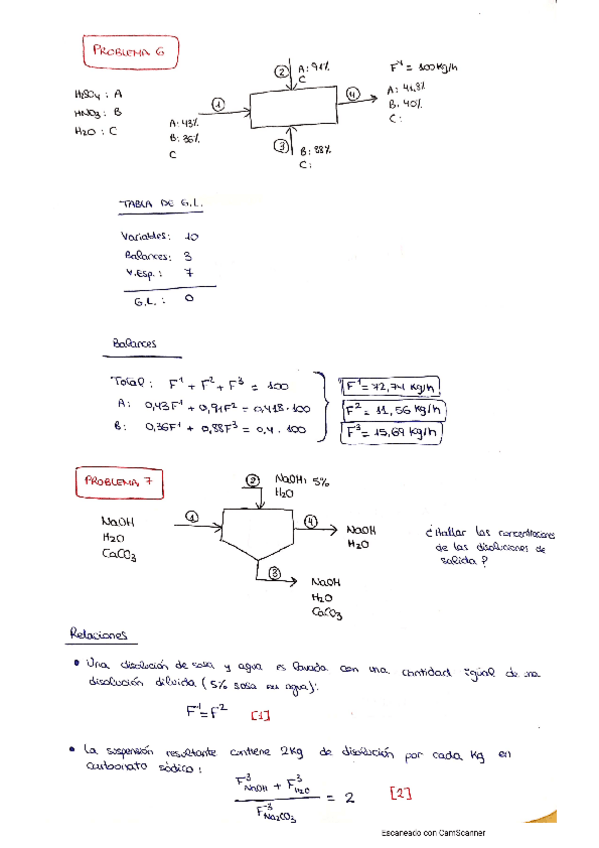 PROBLEMA 6
② A: 91%
C
F⁴ = 100 kg/h
H₂SO₄ : A
HNO₃ : B
H₂O : C
①
④
A: 41,8%
B: 40%
C:
A: 43%
B: 36%
C
③ B: 88%
C:
TABLA DE G.L.
Variables: 10
Balances: 3
V.Esp.: 7
G.L.: 0
Balances
Total: F¹ + F² + F³ = 100
A: 0,43F¹ + 0,91F² = 0,418·100
B: 0,36F¹ + 0,88F³ = 0,4·100
F¹ = 72,74 kg/h
F² = 11,56 kg/h
F³ = 15,69 kg/h
PROBLEMA 7
② NaOH: 5%
H₂O
①
NaOH
H₂O
CaCO₃
④
NaOH
H₂O
¿Hallar las concentraciones
de las disoluciones de
salida?
③
NaOH
H₂O
CaCO₃
Relaciones
• Una disolución de sosa y agua es lavada con una cantidad igual de una
disolución diluida (5% sosa en agua):
F¹=F² [1]
• La suspensión resultante contiene 2kg de disolución por cada kg en
carbonato sódico:
F³NaOH + F³H₂O
= 2 [2]
F³Na₂CO₃
Escaneado con CamScanner